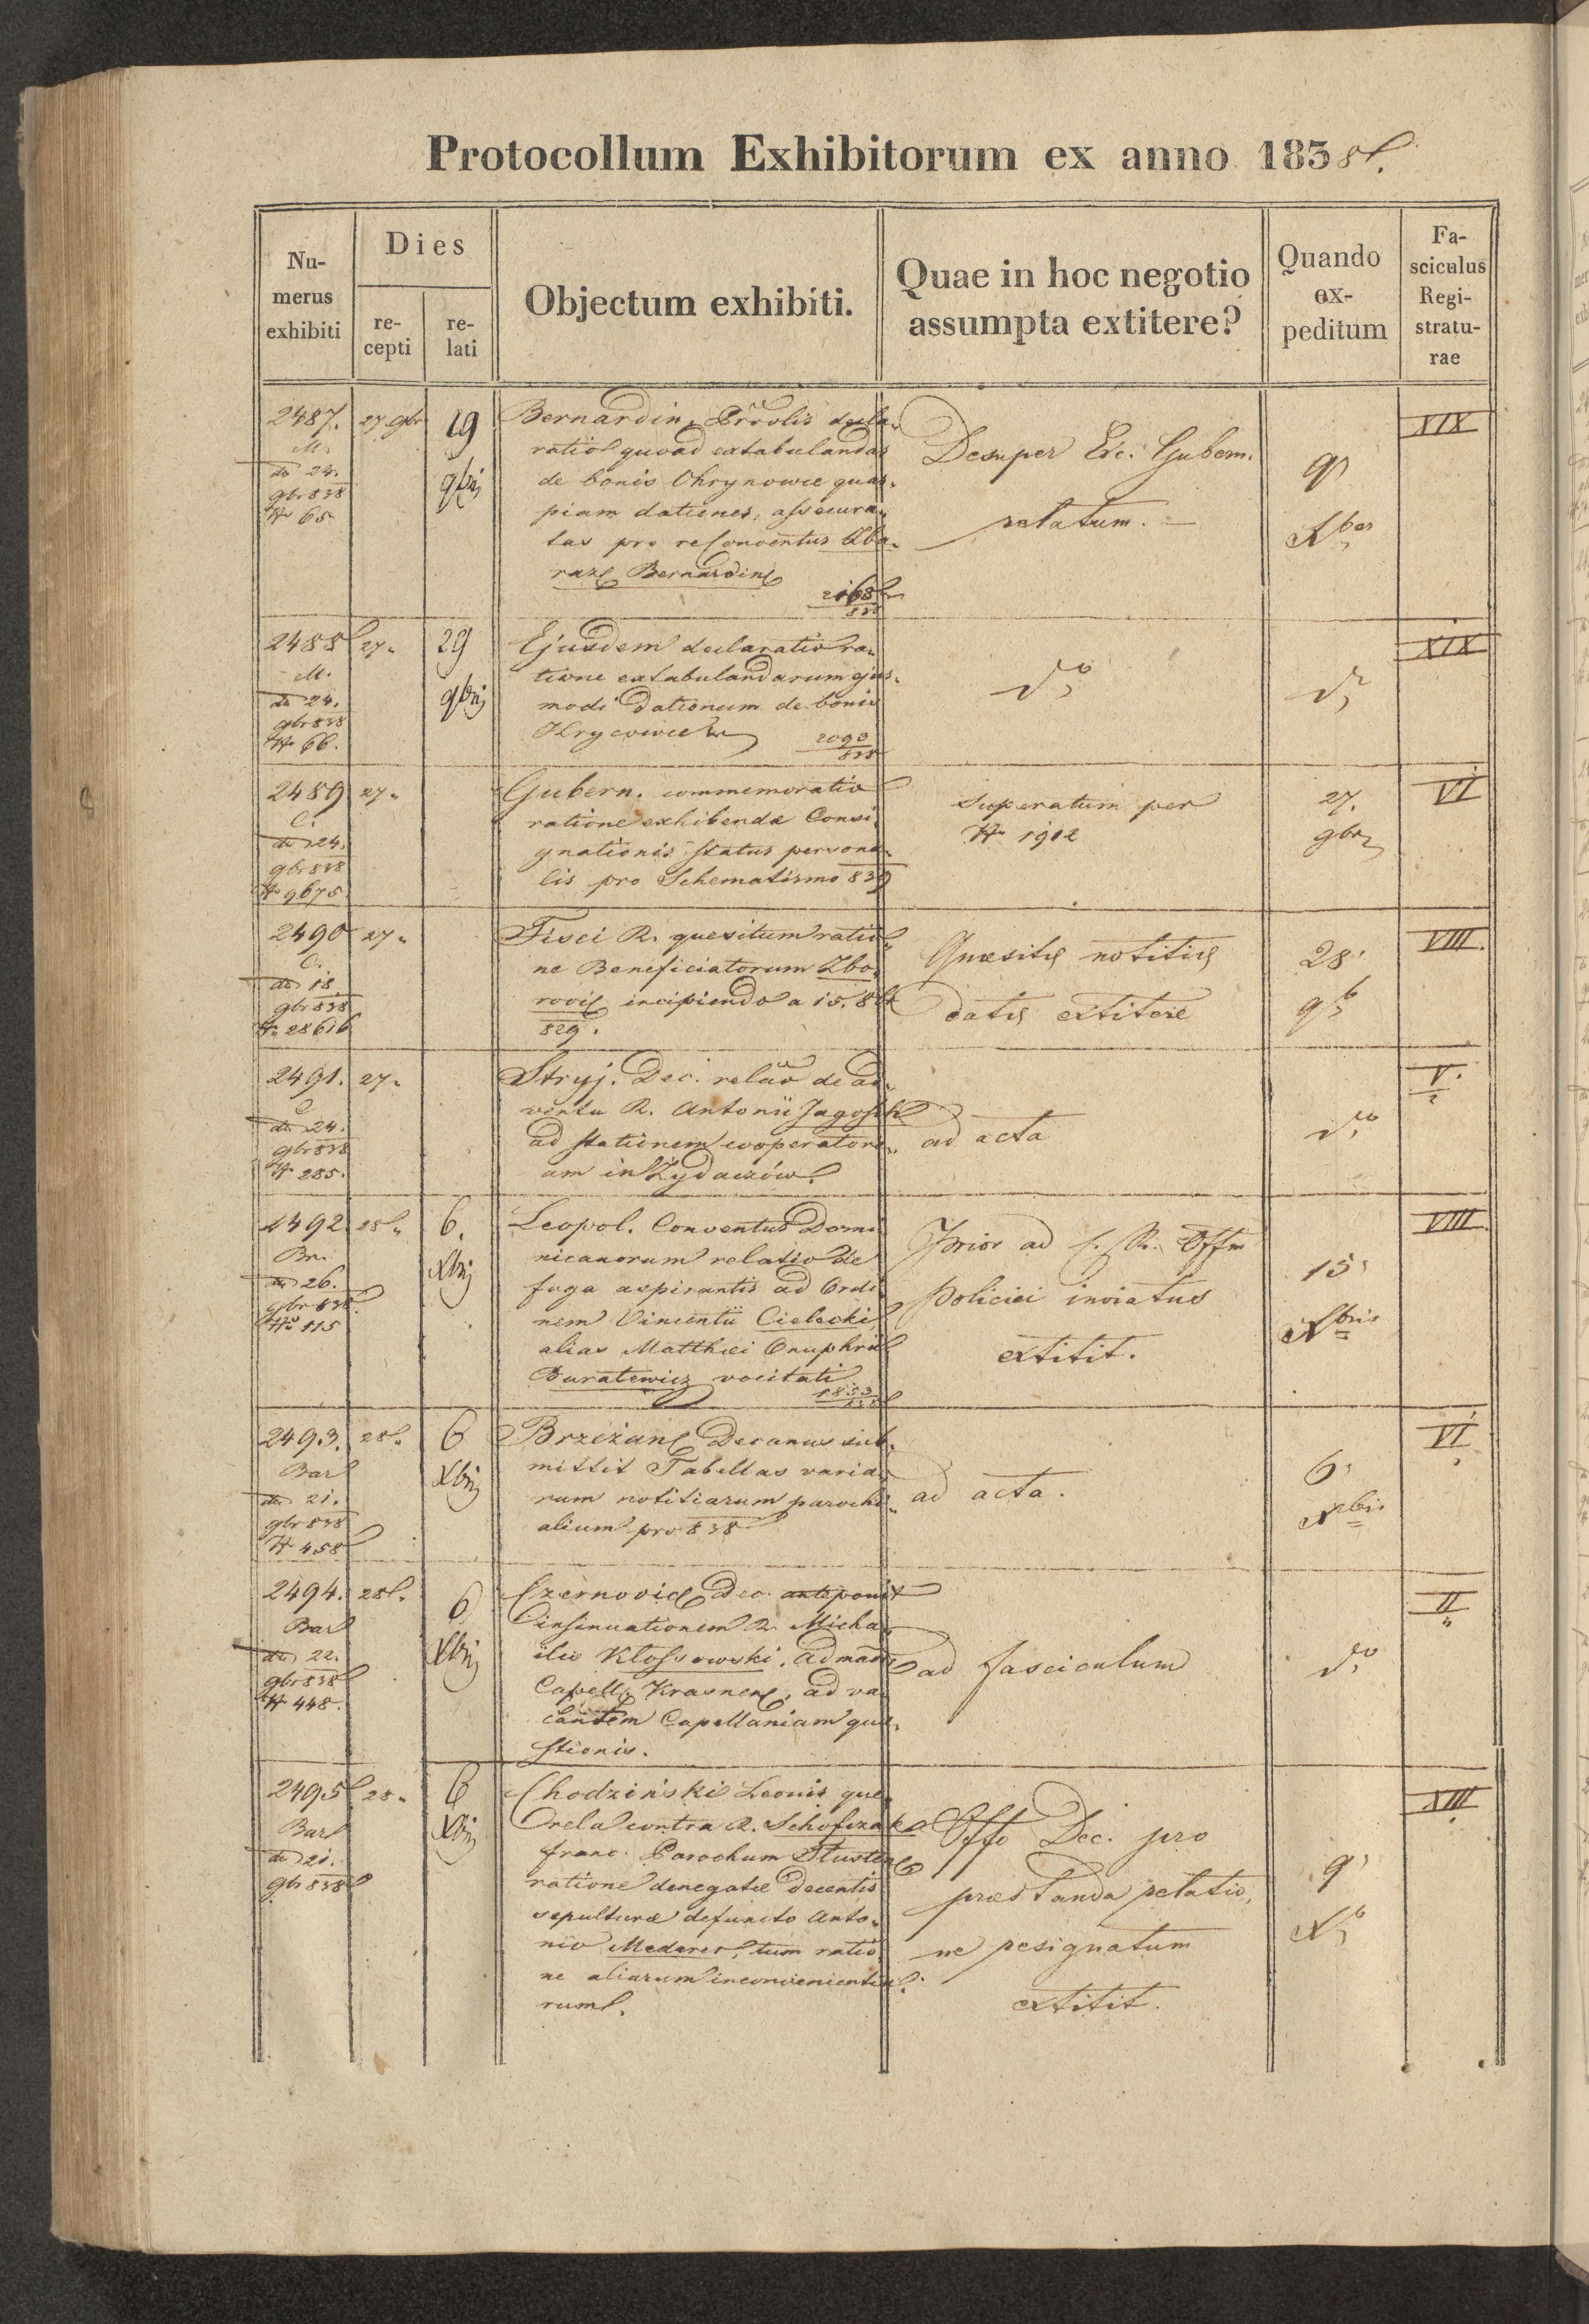 Protocollum Exhibitorum ex anno 1838.
Nu-
merus
exhibiti
Dies
re-
cepti
re-
lati
Objectum exhibiti.
Quae in hoc negotio
assumpta extitere?
Quando
ex-
peditum
Fa-
sciculus
Regi-
stratu-
rae
2487.
M.
dd 24.
9br 838
No 65
27. 9br
29
9brij
Bernardin. Prvolis decla-
ratio quoad extabulandas
de bonis Ohrynowce quas-
piam dationes, assecura-
tas pro re Conventus Zba-
raz Bernardin
2168
838
Desuper Exc. Gubern.
relatum.
9
Xber
XIX
2488
M.
dd 24.
9br 838
No 66.
27.
29
9brij
Ejusdem declaratio ra-
tione extabulandarum ejus-
modi dationum de bonis
Hrycowce
2093
838
do
do
XIX
2489
C.
dd 24.
9br 838
No 9675
27.
Gubern. commemoratio
ratione exhibendae Consi-
gnationis status persona-
lis pro Schematismo 839
Superatum per
No 1902
27.
9br
VI
2490
C.
dd 18
9br 838
No 28616
27.
Fisci R. quesitum ratio-
ne Beneficiatorum Zbo-
rovi incipiendo a 15. 8br
829.
Quaesitae notitiae
datae extitere
28.
9b
VIII.
2491.
C
dd 24.
9br 838
No 285.
27.
Stryj. Dec. relao de ad-
ventu R. Antonii
ad stationem cooperatori-
am in Żydaczów.
ad acta
do
V.
2492.
Br.
dd 26.
9br 838
No 115
28.
6.
Xbrij
Leopol. Conventus Domi-
nicanorum relatio de
fuga aspirantis ad Ordi-
nem Vincentii Cielecki
alias Matthei Onuphrii
Buratewicz vocitati
1833
838
Prior ad C. R. Offm
Policiei inviatus
extitit.
15.
Xbris
VIII.
2493.
Bar
dd 21.
9br 838
No 458
28.
6
Xbrij
Brzeżan Decanus sub-
mittit Tabellas varia-
rum notitiarum parochi-
alium pro 838
ad acta.
6.
Xbris
VI
2494.
Bar
dd 22.
9br 838
No 448.
28.
6
Xbrij
Czernovic Dec. anteponit
insinuationem R. Micha-
elis Klossowski, Admin
Capell. Krasnen, ad va-
cantem Capellaniam que-
stionis.
ad fasciculum
do
II
2495
Bar
dd 21.
9br 838
28.
6
Xbrij
Chodziński Leonis que-
rela contra R. Schofczak
franc. Parochum
ratione denegatae decentis
sepulturae defuncto Anto-
nio Mederer, tum ratio-
ne aliarum inconvenientia-
rum.
Offo Dec. pro
praestanda relatio-
ne resignatum
extitit.
9.
Xb
XIII